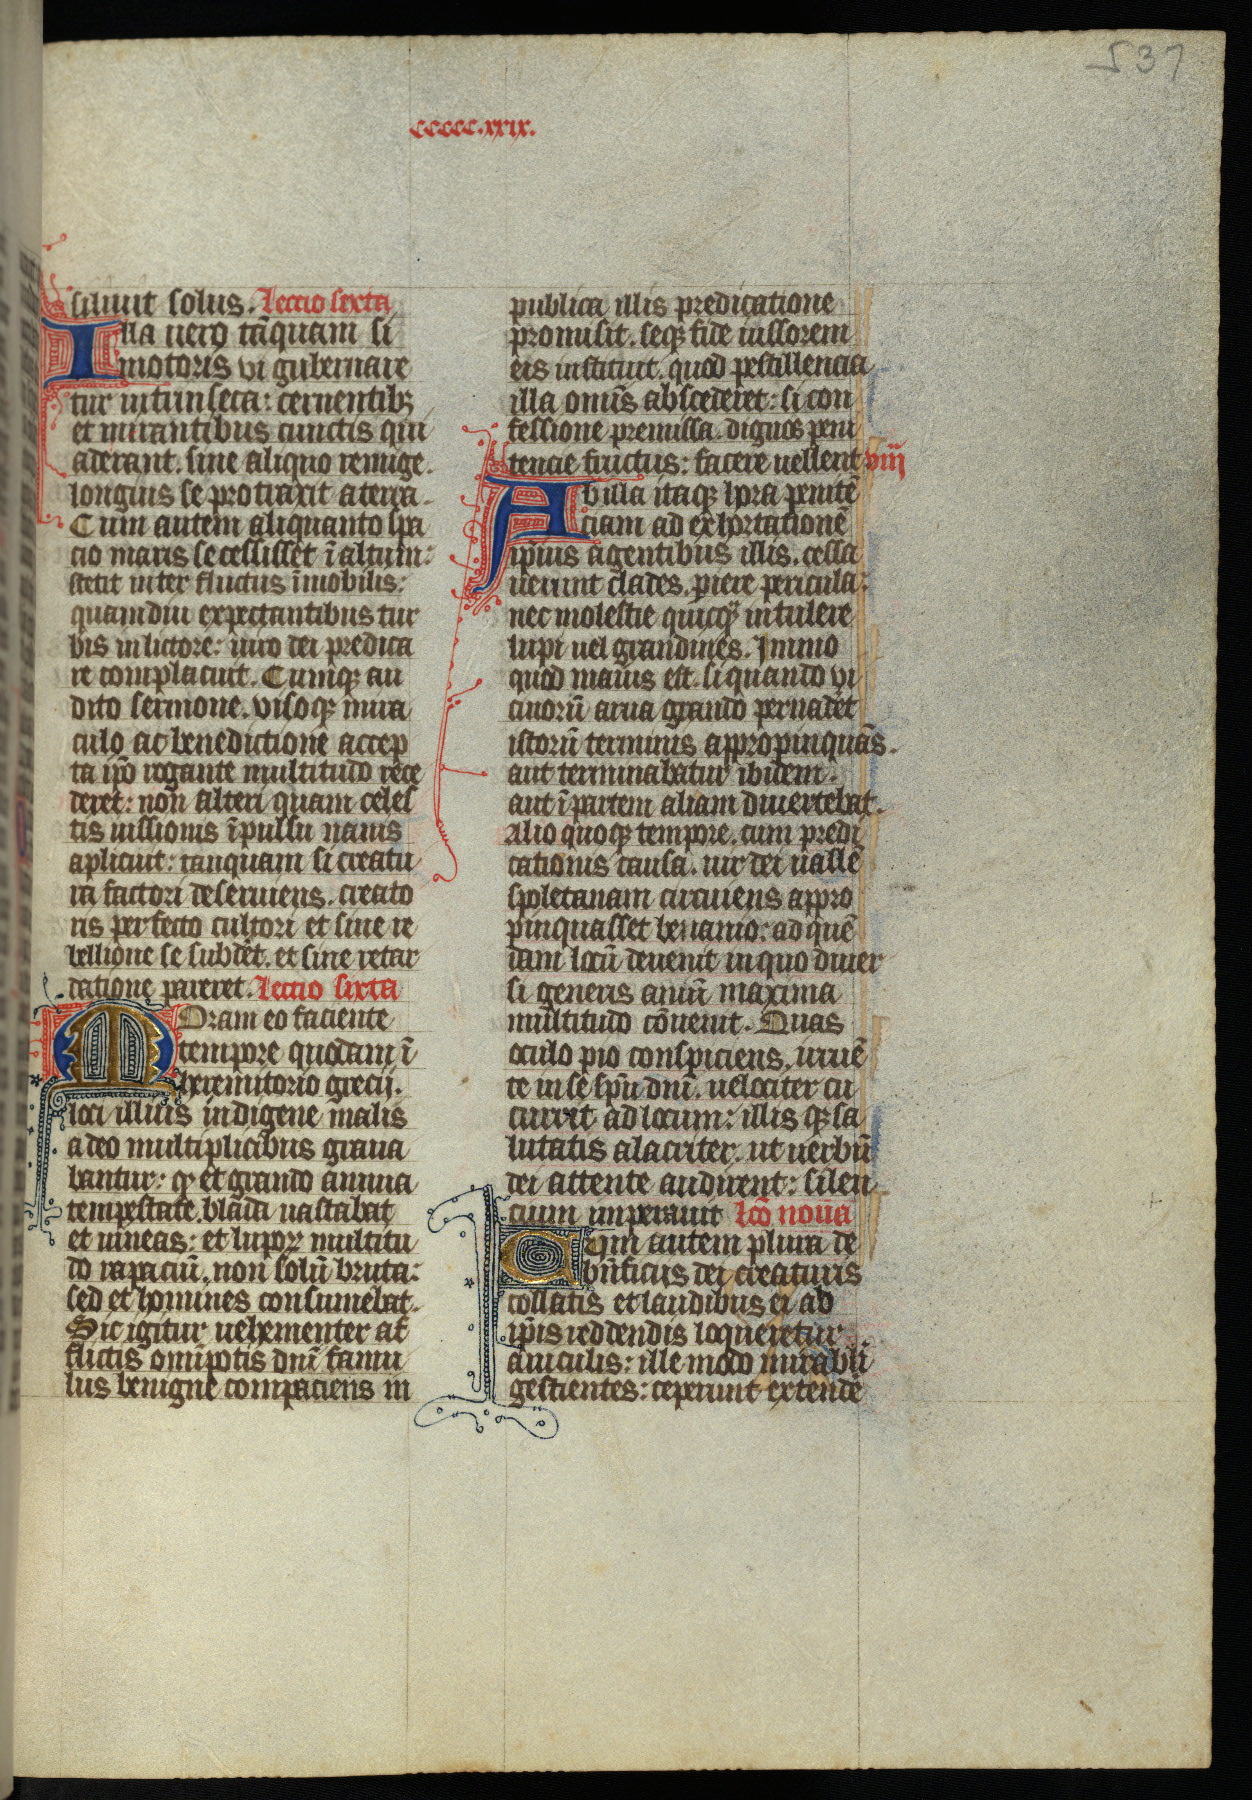 537
ccccc.xxix.
siluit solus. Lectio sexta
Illa uero tãquam si
motoris vi gubernare
tur intrinseca: cernentibꝫ
et mirantibus cunctis qui
aderant. sine aliquo remige.
longius se protraxit a terra.
Cum autem aliquanto spa
cio maris secessisset ĩ altum:
stetit inter fluctus ĩmobilis:
quamdiu expectantibus tur
bis in litore: uiro dei predica
re complacuit. Cumqꝫ au
dito sermone. visoqꝫ mira
culo ac benedictione accep
ta ip̃o rogante multitudo rece
deret: non alteri quam celes
tis iussionis ĩpulsu nauis
aplicuit: tanquam si creatu
ra factori deseruiens. creato
ris perfecto cultori et sine re
bellione se subdẽt. et sine retar
datione pareret. Lectio sixta
Moram eo faciente
tempore quodam ĩ
heremitorio grecij.
loci illius indigene malis
adeo multiplicibus graua
bantur: qꝫ et grando annua
tempestate. blada uastabat
et uineas: et lupoꝝ multitu
do rapaciũ. non solũ bruta:
sed et homines consumebat.
Sic igitur uehementer af
flictis omĩpotis dnĩ famu
lus benigne compaciens in
publica illis predicatione
promisit. seqꝫ fide iussorem
eis instituit. quod pestillencia
illa omĩs abscederet: si con
fessione premissa. dignos peni
tencie fructus: facere uellent viij
Ab illa itaqꝫ hora penitẽ
ciam ad exhortationẽ
ip̃ius agentibus illis. cessa
uerunt clades. piere pericula:
nec molestie quicqꝫ intulere
lupi uel grandines. Immo
quod maius est. si quando vi
cinorũ arua grando peruadẽt
istorũ terminis appropinquãs.
aut terminabatur ibidem.
aut ĩ partem aliam diuertebat.
Alio quoqꝫ tempore. cum predi
cationis causa. uir dei uallẽ
spoletanam circuiens appro
pinquasset beuanio: ad quẽ
dam locũ deuenit in quo diuer
si generis auiũ maxima
multitudo cõuenit. Quas
oculo pio conspiciens. irruẽ
te in se spũ dnĩ. uelociter cu
currit ad locum: illis qꝫ sa
lutatis alacriter. ut uerbũ
dei attente audirent: silen
cium imperauit Lc̃o noua
Cum autem plura de
bñficijs dei creaturis
collatis et laudibus ei ab
ip̃is reddendis loqueretur
auiculis: ille modo mirabli
gestientes: ceperunt extende